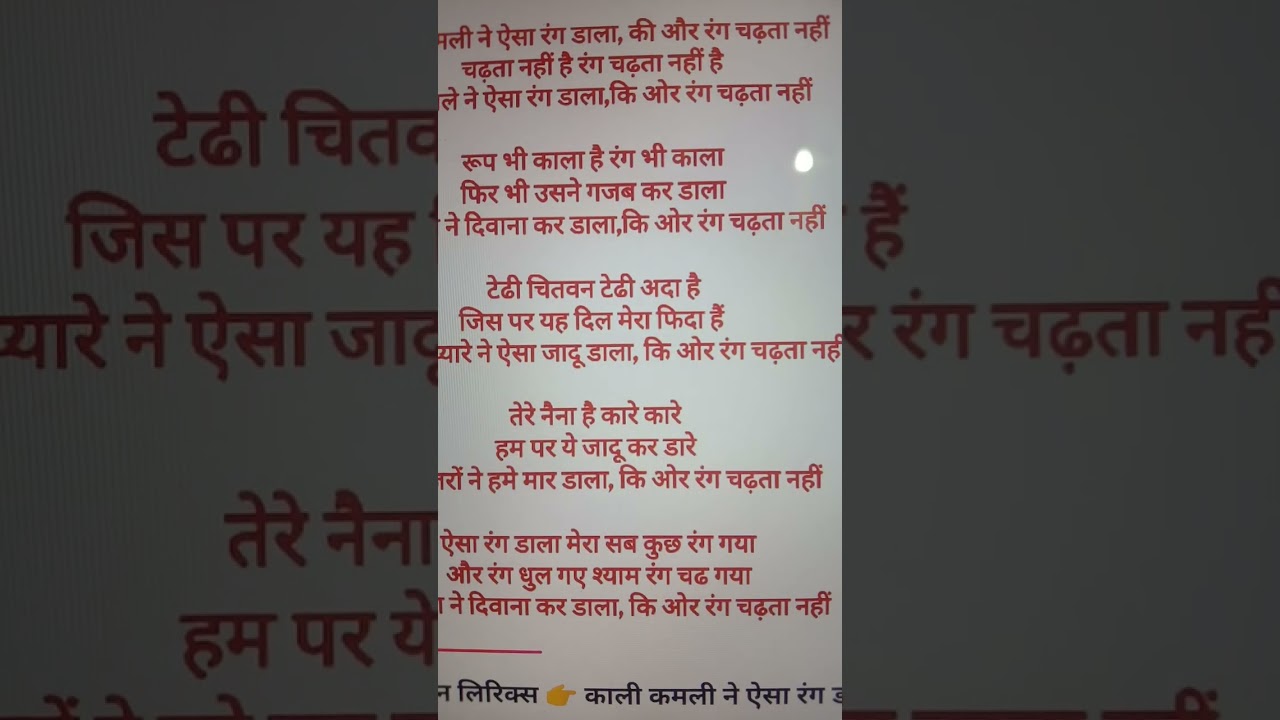 मली ने ऐसा रंग डाला, की और रंग चढ़ता नहीं
चढ़ता नहीं है रंग चढ़ता नहीं है
ले ने ऐसा रंग डाला,कि ओर रंग चढ़ता नहीं
रूप भी काला है रंग भी काला
फिर भी उसने गजब कर डाला
ने दिवाना कर डाला,कि ओर रंग चढ़ता नहीं
टेढी चितवन टेढी अदा है
जिस पर यह दिल मेरा फिदा हैं
यारे ने ऐसा जादू डाला, कि ओर रंग चढ़ता नही
तेरे नैना है कारे कारे
हम पर ये जादू कर डारे
रों ने हमे मार डाला, कि ओर रंग चढ़ता नहीं
ऐसा रंग डाला मेरा सब कुछ रंग गया
और रंग धुल गए श्याम रंग चढ गया
ने दिवाना कर डाला, कि ओर रंग चढ़ता नहीं
न लिरिक्स 👉 काली कमली ने ऐसा रंग ड